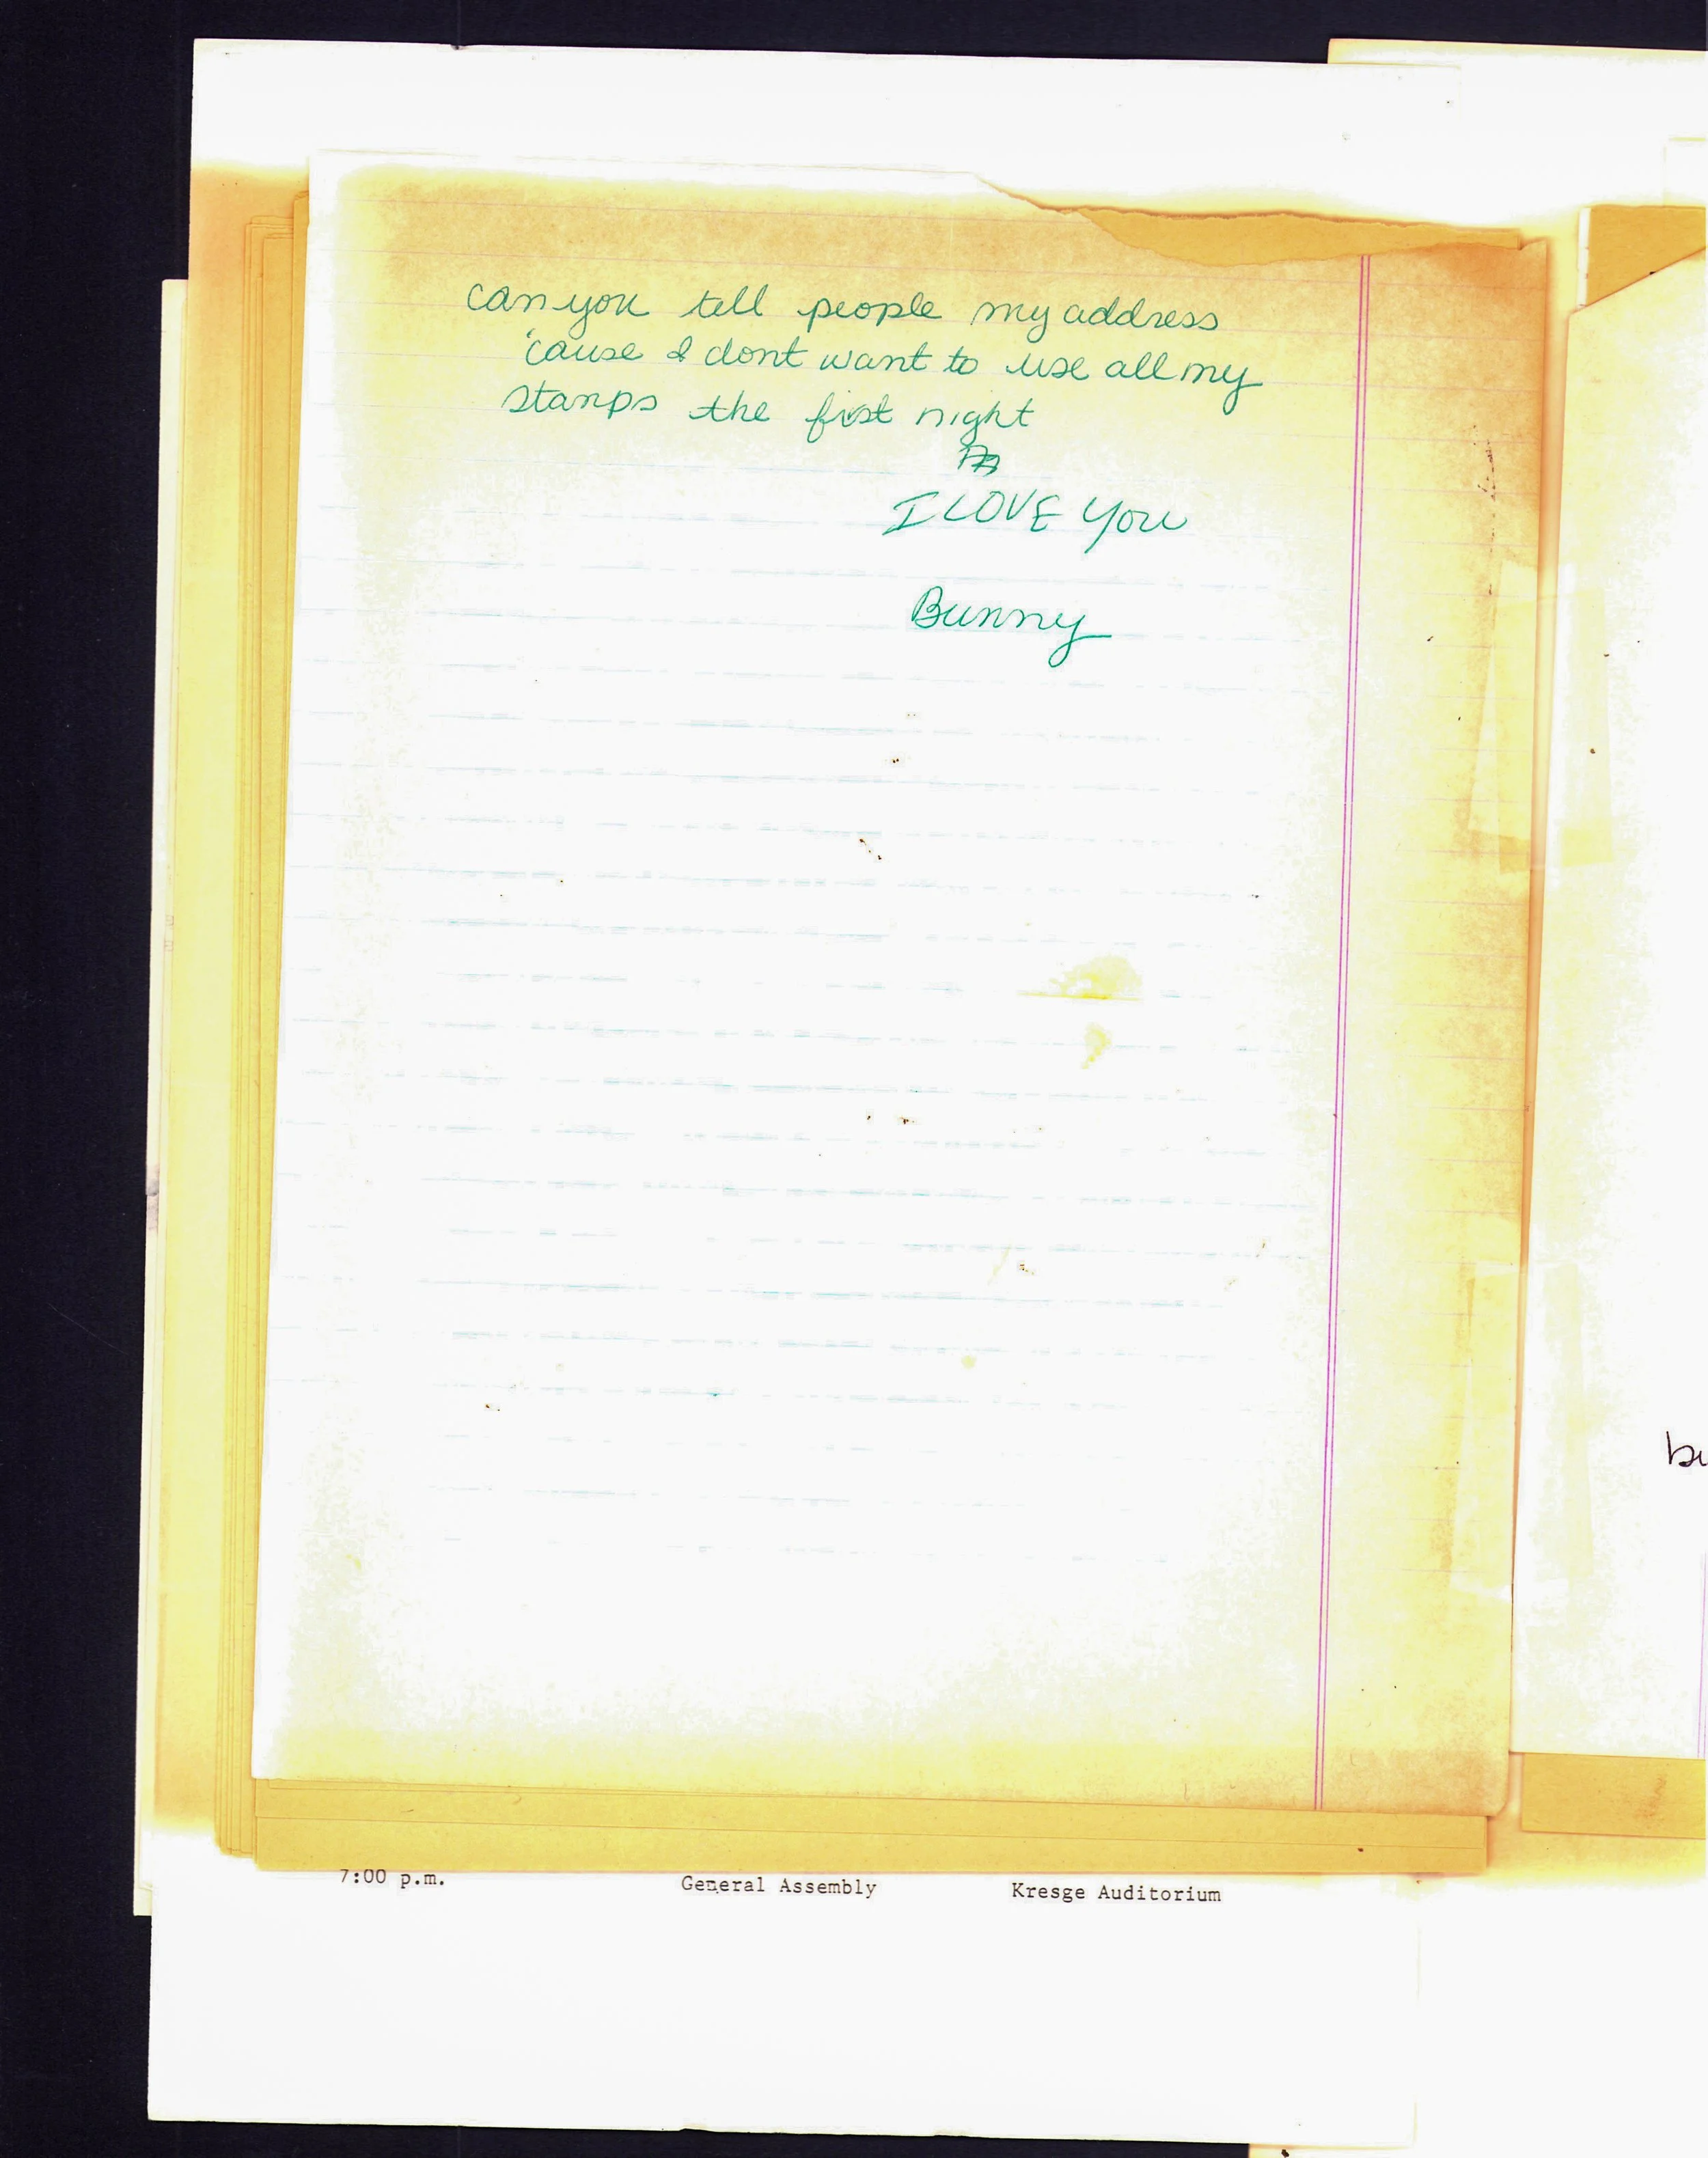 can you tell people my address
'cause I dont want to use all my
stamps the first night
I LOVE You
Bunny
7:00 p.m. General Assembly Kresge Auditorium